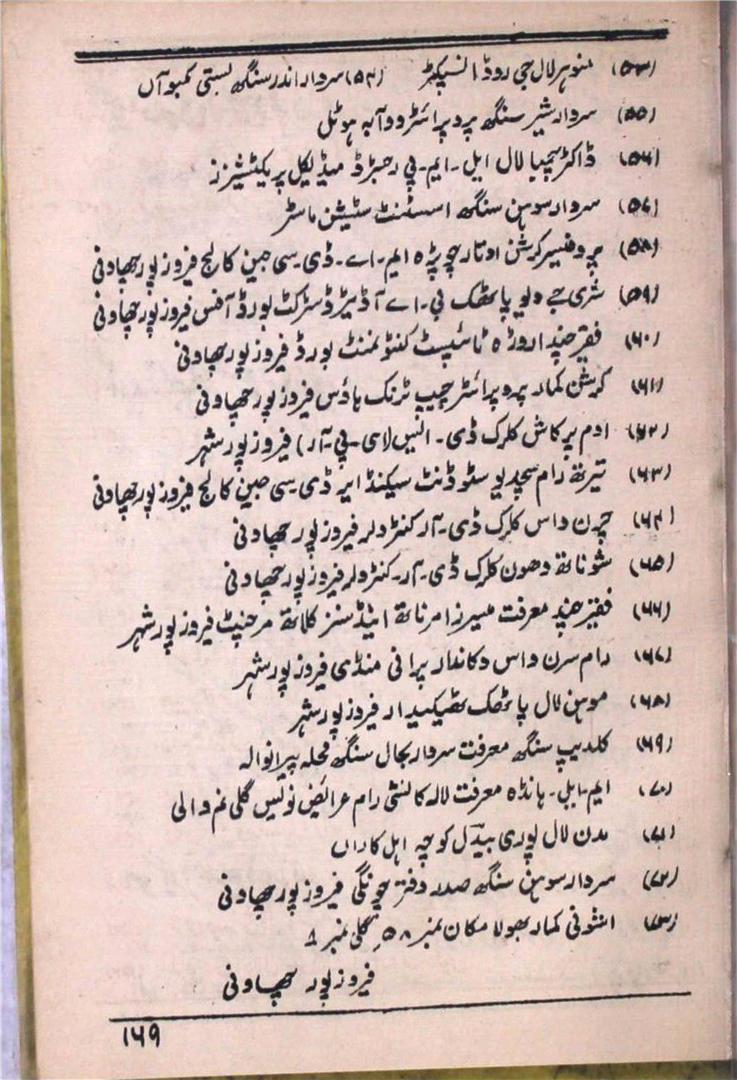 (۵۳) منوہر لال جی روڈ انسپکٹر (۵۴) سردار اندر سنگھ بستی کمبوآں
(۵۵) سردار شیر سنگھ پروپرائٹر دوآبہ ہوٹل
(۵۶) ڈاکٹر چمپا لال ایل۔ایم۔پی رجسٹرڈ میڈیکل پریکٹیشنرز
(۵۷) سردار سوہن سنگھ اسسٹنٹ سٹیشن ماسٹر
(۵۸) پروفیسر کرشن اوتار چوپڑہ ایم۔اے۔ڈی۔سی جین کالج فیروزپور چھاونی
(۵۹) شری جے دیو پاٹھک بی۔اے آڈیٹر ڈسٹرکٹ بورڈ آفس فیروزپور چھاونی
(۶۰) فقیر چند اروڑہ ٹائپسٹ کنٹونمنٹ بورڈ فیروزپور چھاونی
(۶۱) کرشن کمار پروپرائٹر چیپ ٹرنک ہاؤس فیروزپور چھاونی
(۶۲) اوم پرکاش کلرک ڈی۔ایس (سی۔پی۔آر) فیروزپور شہر
(۶۳) تیرتھ رام سچدیو سٹوڈنٹ سیکنڈ ایر ڈی سی جین کالج فیروزپور چھاونی
(۶۴) چرن داس کلرک ڈی۔آر کنٹرولر فیروزپور چھاونی
(۶۵) شوناتھ دھون کلرک ڈی۔آر۔کنٹرولر فیروزپور چھاونی
(۶۶) فقیر چند معرفت میسرز امرناتھ اینڈ سنز کلاتھ مرچنٹ فیروزپور شہر
(۶۷) رام سرن داس دکاندار پرانی منڈی فیروزپور شہر
(۶۸) موہن لال پاٹھک ٹھیکیدار فیروزپور شہر
(۶۹) کلدیپ سنگھ معرفت سردار بحال سنگھ محلہ پیرانوالہ
(۷۰) ایم۔ایل۔ہانڈہ معرفت لالہ کانشی رام عرائض نویس گلی نم والی
(۷۱) مدن لال پوری بیدل کوچہ اہل کاراں
(۷۲) سردار سوہن سنگھ صدر دفتر چونگی فیروزپور چھاونی
(۷۳) اشونی کمار بھولا مکان نمبر ۵۸، گلی نمبر ۸
فیروزپور چھاونی
۱۶۹